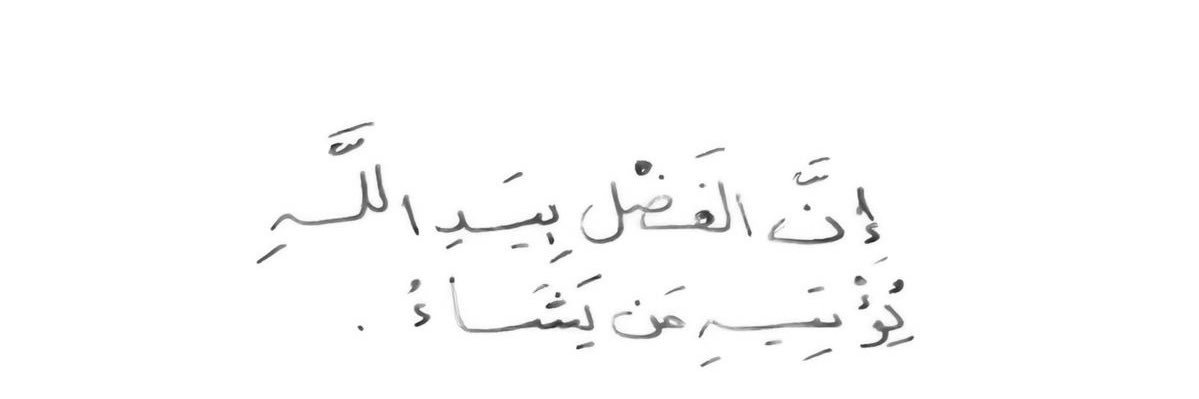 إِنَّ الفَضْل بِيَدِ اللَّهِ
يُؤْتِيهِ مَن يَشَاءُ .